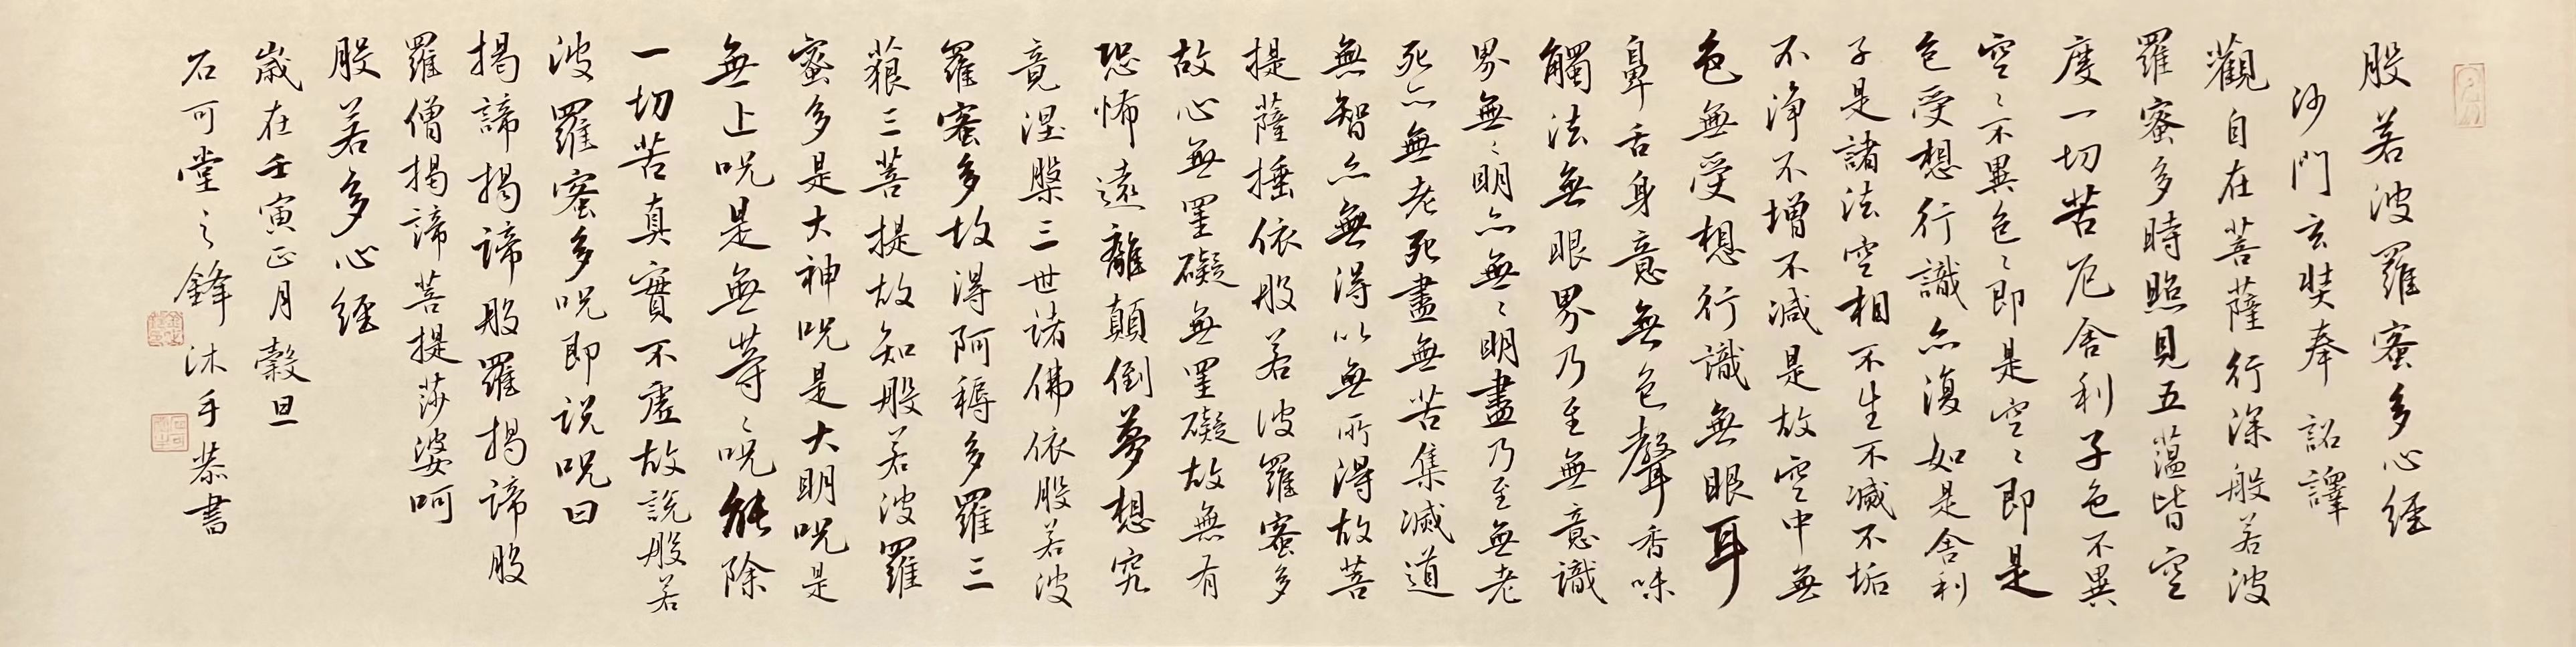 般若波羅蜜多心経
沙門玄奘奉 詔譯
觀自在菩薩行深般若波
羅蜜多時照見五蕴皆空
度一切苦厄舍利子色不異
空〻不異色〻即是空〻即是
色受想行識亦復如是舍利
子是諸法空相不生不滅不垢
不净不增不减是故空中無
色無受想行識無眼耳
鼻舌身意無色聲香味
觸法無眼界乃至無意識
界無〻明亦無〻明盡乃至無老
死亦無老死盡無苦集滅道
無智亦無得以無所得故菩
提薩埵依般若波羅蜜多
故心無罣礙無罣礙故無有
恐怖遠離顛倒夢想究
竟涅槃三世诸佛依般若波
羅蜜多故得阿耨多羅三
藐三菩提故知般若波羅
蜜多是大神呪是大明呪是
無上呪是無等〻呪能除
一切苦真實不虚故説般若
波羅蜜多呪即说呪曰
揭諦揭諦般羅揭諦般
羅僧揭諦菩提莎婆呵
般若多心経
歲在壬寅正月穀旦
石可堂之鋒沐手恭書